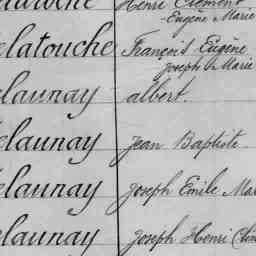 Henri Clément
Eugène Marie
elatouche François Eugène
Joseph Marie
elaunay albert.
elaunay Jean Baptiste
elaunay Joseph Emile Mar
elaunay Joseph Henri Clém